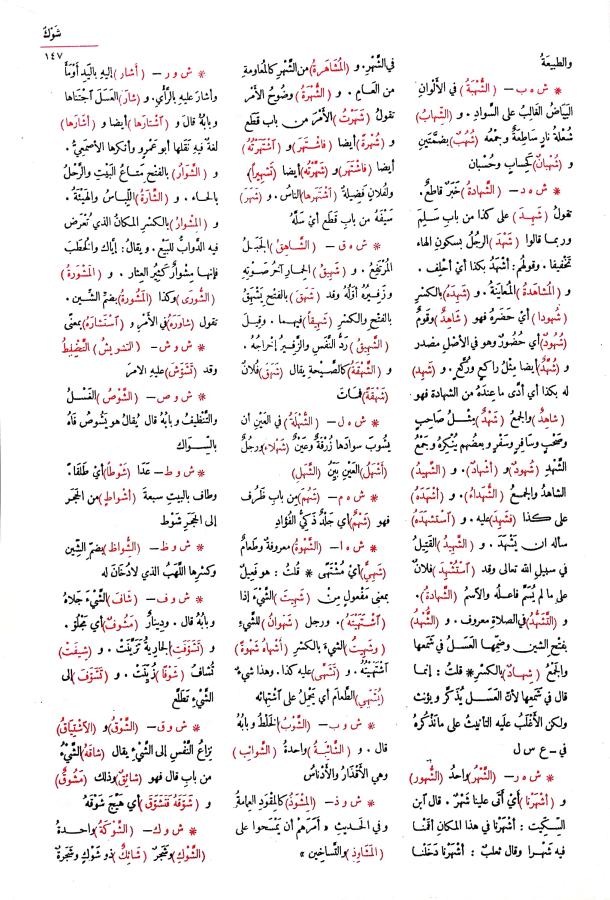 شَوْكٌ
١٤٧
والطبيعَةُ
* ش ه ب – (الشُّهْبَةُ) في الألْوانِ
البَيَاضُ الغالبُ على السَّوادِ . و (الشِّهابُ)
شُعْلَةُ نارٍ ساطِعَةٌ وجمعُه (شُهُبٌ) بضمَّتَينِ
و (شُهْبانٌ) كحِسابٍ وحُسْبان
* ش ه د – (الشَّهادةُ) خَبَرٌ قاطعٌ .
تقولُ (شَهِدَ) على كذا من بابِ سَلِمَ
وربما قالوا (شَهْدَ) الرجُلُ بسكونِ الهاء
تخفيفا . وقولُهم : أشهَدُ بكذا أي أحلِف .
و (المُشاهَدةُ) المُعايَنةُ . و (شَهِدَهُ) بالكسرِ
(شُهودا) أي حَضَرهُ فهو (شاهِدٌ) وقَومٌ
(شُهودٌ) أي حُضُورٌ وهو في الأصْلِ مصدر
و (شُهَّدٌ) أيضا مِثْلُ راكعٍ ورُكَّعٍ . و (شَهِدَ)
له بكذا أي أدَّى ما عِندَهُ من الشهادة فهو
(شاهِدٌ) والجمعُ (شَهْدٌ) مِثْلُ صاحِبٍ
وصَحْبٍ وسافِرٍ وسَفْرٍ وبعضُهم يُنكِرُهُ وجَمْعُ
الشَّهْدِ (شُهودٌ) و (أشْهادٌ) . و (الشَّهيدُ)
الشاهدُ والجمعُ (الشُّهَداءُ) . و (أشْهَدَهُ)
على كذا (فشَهِدَ) عليه . و (اسْتَشْهَدَهُ)
ساله ان يَشْهَدَ . و (الشَّهيدُ) القَتيلُ
في سبيلِ اللهِ تعالى وقد (اسْتُشْهِدَ) فلانٌ
على ما لم يُسَمَّ فاعلُهُ والاسمُ (الشَّهادةُ) .
و (التَّشَهُّدُ) في الصلاةِ معروف . و (الشَّهْدُ)
بفتح الشين وضمِّها العَسَلُ في شَمَعِها
والجَمْعُ (شِهادٌ) بالكسرِ * قلتُ : إنما
قال في شَمَعِها لأنَّ العَسَلَ يُذَكَّرُ ويؤنَّث
ولكن الأغْلَبَ عليه التأنيثُ على ما نَذْكُرُه
في – ع س ل
* ش ه ر – (الشَّهْرُ) واحدُ (الشُّهور)
و (أشْهَرْنا) أي أتَى علينا شَهْرٌ . قال ابن
السِّكيت : أشهَرْنا في هذا المكان أقَمْنا
فيه شهرا وقال ثعلبٌ : أشهَرْنا دَخَلْنا
في الشهْرِ . و (المُشاهَرةُ) من الشَّهْرِ كالمُعاومةِ
من العامِ . و (الشُّهْرةُ) وضوحُ الأمْرِ
تقولُ (شَهَرْتُ) الأمْرَ من باب قَطَع
و (شُهْرةً) أيضا (فاشْتَهَر) و (اشْتَهَرْتُهُ)
أيضا (فاشتَهَر) و (شَهَّرْتُهُ) أيضا (تَشْهيراً)
ولفُلانٍ فضيلةٌ (اشْتَهَرها) الناسُ . و (شَهَرَ)
سَيْفَهُ من باب قَطَع أي سَلَّهُ
* ش ه ق – (الشَّاهِقُ) الجَبَلُ
المُرْتَفِعُ . و (شَهيقُ) الحِمارِ آخرُ صَوتِهِ
وزفيرُه أوَّلُه وقد (شَهَقَ) بالفتح يَشْهَقُ
بالفتح والكسرِ (شَهيقاً) فيهما . وقيلَ
(الشَّهيقُ) رَدُّ النَّفَسِ والزَّفيرُ إخراجُهُ .
و (الشَّهْقَةُ) كالصَّيْحةِ يقالُ (شَهَقَ) فلانٌ
(شَهْقَةً) فمات
* ش ه ل – (الشُّهْلَةُ) في العَيْنِ أن
يَشُوبَ سوادَها زُرْقَةٌ وعَيْنٌ (شَهْلاءُ) ورجلٌ
(أشْهَلُ) العَيْنِ بَيِّنُ (الشَّهَلِ)
* ش ه م – (شَهُمَ) من باب ظَرُف
فهو (شَهْمٌ) أي جَلْدٌ ذَكِيُّ الفُؤَاد
* ش ه ا – (الشَّهْوةُ) معروفة وطَعامٌ
(شَهِيٌّ) أي مُشْتَهًى * قُلتُ : هو فَعيلٌ
بمعنى مَفْعولٍ مِنْ (شَهِيتُ) الشيءَ إذا
(اشْتَهَيْتَهُ) . ورجل (شَهْوانُ) للشَّيءِ
و (شَهِيتُ) الشيءَ بالكسرِ (أشْهاهُ شَهْوةً)
اشتَهَيْتُه . و (تَشَهَّى) عليه كذا . وهذا شيءٌ
(يُشَهِّي) الطَّعامَ أي يَحْمِلُ على اشتِهائه
* ش و ب – (الشَّوْبُ) الخَلْطُ وبابُه
قال . و (الشَّائِبَةُ) واحدةُ (الشَّوائبِ)
وهي الأقْذَارُ والأدْناسُ
* ش و ذ – (المِشْوَذُ) كالمِقْوَدِ العِمامةُ
وفي الحديثِ « أمَرَهم أن يَمْسَحوا على
(المَشَاوِذِ) والتَّساخِينِ »
* ش و ر – (أشارَ) إليه باليَدِ أوْمأ
وأشارَ عليه بالرَّأيِ . و (شارَ) العَسَلَ اجْتَناها
وبابُه قالَ و (اشْتارَها) أيضا و (أشارَها)
لغةٌ فيه نَقَلها أبو عمرٍو وأنكرها الأصمعيُّ .
و (الشَّوَارُ) بالفتح مَتاعُ البَيْتِ والرَّحْلُ
بالحاء . و (الشَّارَةُ) اللِّباسُ والهَيْئةُ .
و (المِشْوارُ) بالكسر المكانُ الذي تُعْرَضُ
فيه الدَّوابُّ للبَيْعِ . ويقالُ : إيَّاكَ والخُطَبَ
فإنها مِشْوارٌ كَثيرُ العِثارِ . و (المَشْورةُ)
(الشُّورَى) وكذا (المَشُورةُ) بضم الشين .
تقول (شاورَهُ) في الأمْرِ و (اسْتَشارَهُ) بمعنًى
* ش و ش – (التشويشُ) التَّخْلِيطُ
وقد (تَشَوَّشَ) عليه الامرُ
* ش و ص – (الشَّوْصُ) الغَسْلُ
والتنظيفُ وبابُه قال يُقالُ هو يَشُوصُ فاهُ
بالسِّواك
* ش و ط – عَدَا (شَوْطاً) أي طَلَقاً
وطاف بالبيتِ سبعةَ (أشواطٍ) من الحَجَر
إلى الحجَرِ شَوْط
* ش و ظ – (الشُّواظُ) بضم الشين
وكسرِها اللَّهَبُ الذي لا دُخَانَ له
* ش و ف – (شَافَ) الشيءَ جَلاهُ
وبابُهُ قال . ودينارٌ (مَشُوفٌ) أي مَجْلُوٌّ .
و (تَشَوَّفَتِ) الجاريةُ تَزَيَّنَتْ . و (شِيفَتْ)
تُشافُ (شَوْفًا) زُيِّنَتْ . و (تَشَوَّفَ) إلى
الشيْءِ تَطَلَّعَ
* ش و ق – (الشَّوْقُ) و (الاشْتِياقُ)
نِزاعُ النَّفْسِ إلى الشيْءِ يقال (شاقَهُ) الشَّيْءُ
من باب قال فهو (شائِقٌ) وذلك (مَشُوقٌ)
و (شَوَّقَهُ فَتَشَوَّقَ) أي هَيَّجَ شَوْقَهُ
* ش و ك – (الشَّوْكَةُ) واحدةُ
(الشَّوْكِ) وشَجَرٌ (شائِكٌ) ذو شَوْكٍ وشَجَرَةٌ